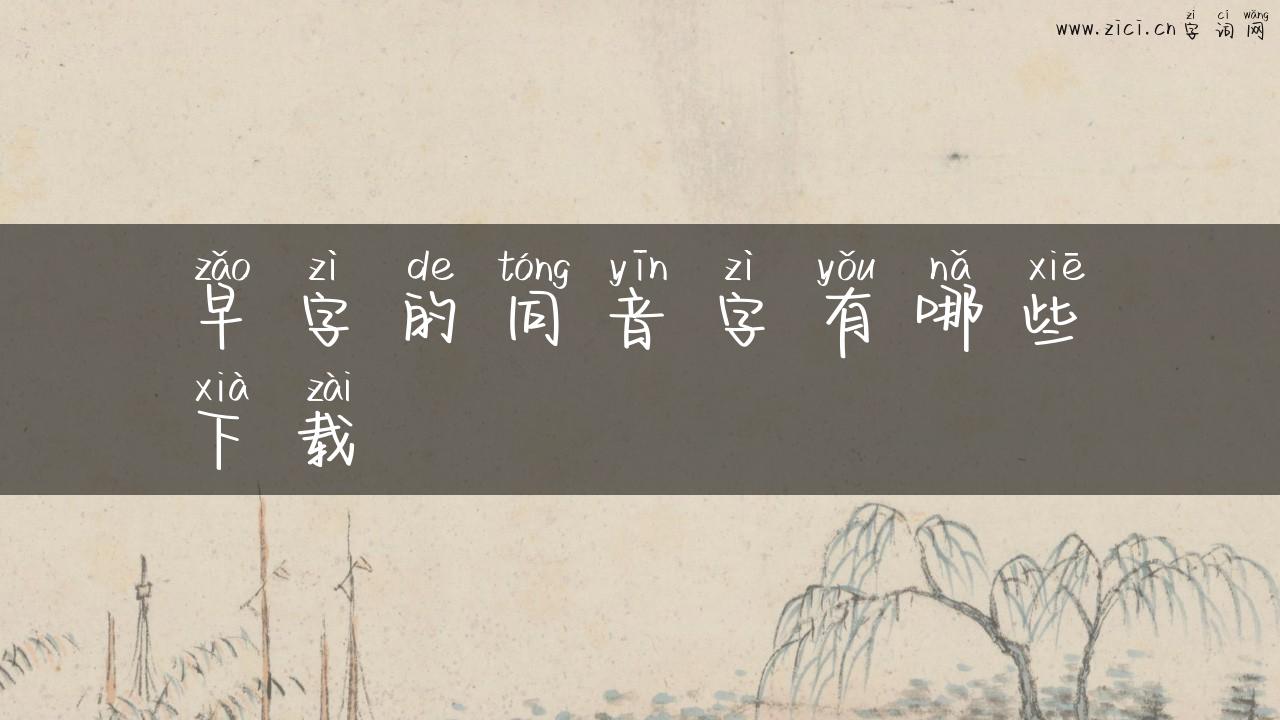 zì cí wǎng
www.zici.cn字词网
zǎo zì de tóng yīn zì yǒu nǎ xiē
早字的同音字有哪些
xià zài
下载